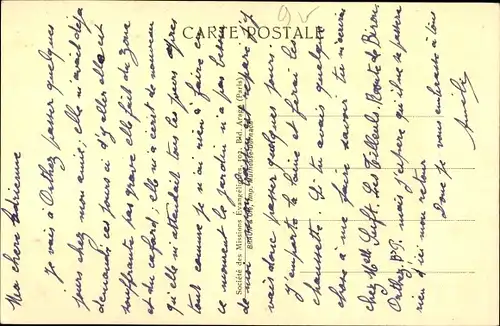 CARTE POSTALE
Ma chère Adrienne
Je vais à Orthez passer quelques
jours chez mon amie; elle m'avait déjà
demandé ces jours ci d'y aller elle est
souffrante pas grave elle fait de
et du cafard, elle m'a écrit de nouveau
qu'elle m'attendait tous les jours après
tout comme je n'ai rien à faire en
ce moment le jardin n'a pas besoin
de moi j'espère j'y
vais donc passer quelques jours.
J'emporte la laine et ferai les
chaussettes. Si tu avais quelque
chose à me faire savoir tu m'écris
chez Melle Les Tilleuls, Route de Biron
Orthez, BP. mais j'espère qu'il ne se passera
rien d'ici mon retour
Donc je vous embrasse à tous
Société des Missions Evangéliques, 102, Bd. Arago (Paris)